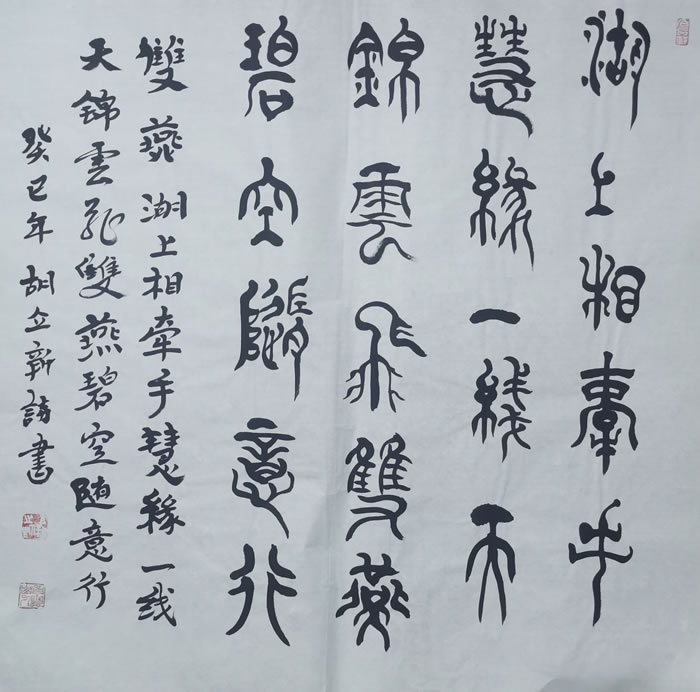 湖上相牽手
慧緣一线天
錦雲飛雙燕
碧空隨意行
雙燕 湖上相牽手慧緣一线
天錦雲飛雙燕碧空随意行
癸巳年 胡立新詩書